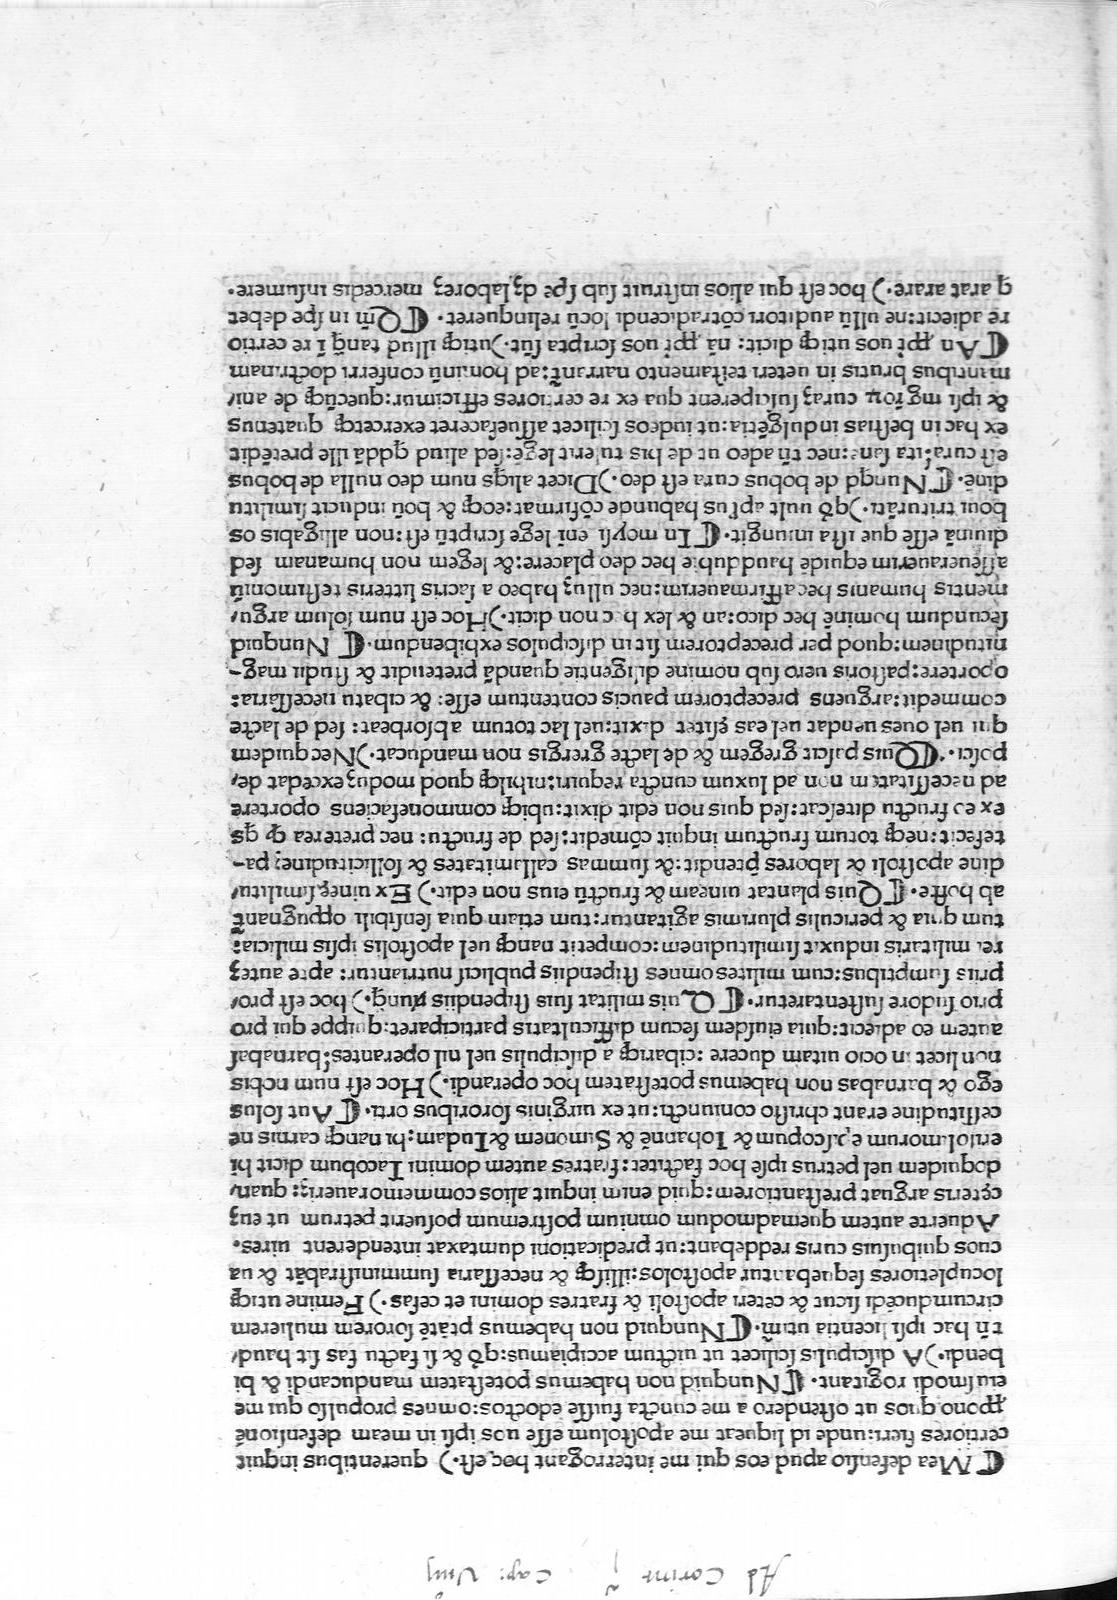 Ad Corint. ĩ Cap: Viiij
☾ Mea defensio apud eos qui me interrogant hec est.) querentibus inquit
certiores fieri:unde id liqueat me apostolum esse uos ipsi in meam defensionē
ꝓpono quos ut ostendero a me cuncta fuisse edoctos:omnes propulso qui me
eiusmodi rogitant. ☾ Nunquid non habemus potestatem manducandi & bi
bendi.) A discipulis scilicet ut uictum accipiamus:qđ & si factu fas sit haud/
tñ hac ipsi licentia utim̃. ☾ Nunquid non habemus ptātē sororem mulierem
circumducēdi sicut & ceteri apostoli & fratres domini et cefas.) Femine utiqꝫ
locupletiores sequebantur apostolos:illisqꝫ & necessaria sumministrabāt & ua
cuos quibusuis curis reddebant:ut predicationi dumtaxat intenderent uires.
Aduerte autem quemadmodum omnium postremum posuerit petrum ut euꝫ
cęteris arguat prestantiorem:quid enim inquit alios commemorauerim: quan/
doquidem uel petrus ipse hoc factitet:fratres autem domini Iacobum dicit hi
erusolimorum episcopum & Iohannē & Simonem & Iudam:hi nanqꝫ carnis ne
cessitudine erant christo coniuncti:ut ex uirginis sororibus orti. ☾ Aut solus
ego & barnabas non habemus potestatem hoc operandi.) Hoc est num nobis
non licet in ocio uitam ducere :cibariqꝫ a discipulis uel nil operantes:barnabaſ
autem eo adiecit:quia eiusdem secum difficultatis participaret:quippe qui pro
prio sudore sustentaretur. ☾ Quis militat suis stipendiis unqꝫ.) hoc est pro/
priis sumptibus:cum milites omnes stipendiis publicis nutriantur: apte auteꝫ
rei militaris induxit similitudinem:competit nanqꝫ uel apostolis ipsis milicia:
tum quia & periculis plurimis agitantur:tum etiam quia sensibili oppugnant̃
ab hoste. ☾ Quis plantat uineam & fructū eius non edit.) Ex uineę similitu/
dine apostoli & labores p̄tendit:& summas callimitates & sollicitudineꝫ pa-
tefecit:neqꝫ totum fructum inquit cōmedit:sed de fructu: nec preterea qꝫ qs
ex eo fructu ditescat:sed quis non edit dixit:ubiqꝫ commonefaciens oportere
ad necessitatem non ad luxum cuncta requiri:nihilqꝫ quod modum excedat de/
posci. ☾ Quis pascit gregem & de lacte gregis non manducat.) Nec quidem
qui uel oues uendat uel eas gliser dixit:uel lac totum absorbeat: sed de lacte
commedit:arguens preceptorem paucis contentum esse: & cibatu necessaria:
oportere:pastoris uero sub nomine diligentie quandā pretendit & studii mag-
nitudinem:quod per preceptorem sit in discipulos exhibendum. ☾ Nunquid
secundum hominē hec dico:an & lex hec non dicit.) Hoc est num solum argu/
mentis humanis hec affirmauerim:nec ulluꝫ habeo a sacris litteris testimoniū
asseuerauerim equidē haud dubie hec deo placere:& legem non humanam sed
diuinā esse que ista iniungit. ☾ In moysi eni lege scriptū est:non alligabis os
boui triturāti.) qđ uult ap̃lus habunde cōfirmat:ecqꝫ & boū inducit similitu
dinē. ☾ Nunqd de bobus cura est deo.) Dicet aliqs num deo nulla de bobus
est cura:ita sane:nec tñ adeo ut de his tulerit lege:sed aliud qddā ille pretēdit
ex hac in bestias indulgētia:ut iudeos scilicet assuefaceret exercetqꝫ quatenus
& ipsi mgroꝝ curaꝫ susciperent qua ex re certiores efficimur:quecūqꝫ de ani/
mantibus brutis in ueteri testamento narrant̃:ad hominū conferri doctrinam
☾ An ꝓpt̃ nos utiqꝫ dicit: nā ꝓpt̃ nos scripta sūt.) utiqꝫ illud tanqꝫ ī re certio
re adiecit:ne ullū auditori cōtradicendi locū relinqueret. ☾ Qm̃ in spe debet
q arat arare.) hoc est qui alios instruit sub spe dꝫ laboreꝫ mercedis insumere.